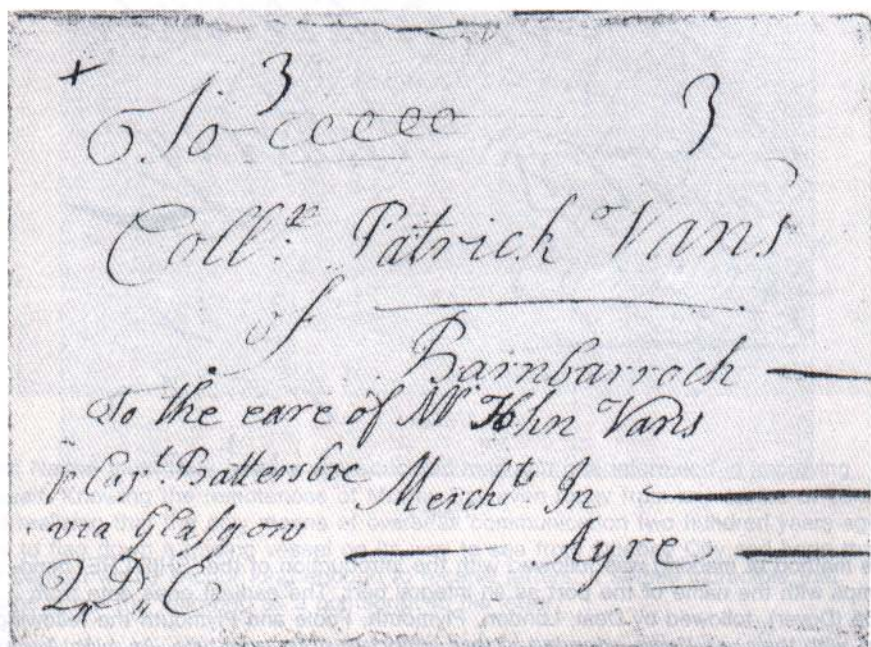 + 3 3
To
Coll:r Patrick Vans
of
Barnbarroch
To the care of Mr John Vans
p Capt. Battersbie Mercht In
via Glasgow Ayre
2 " D " C